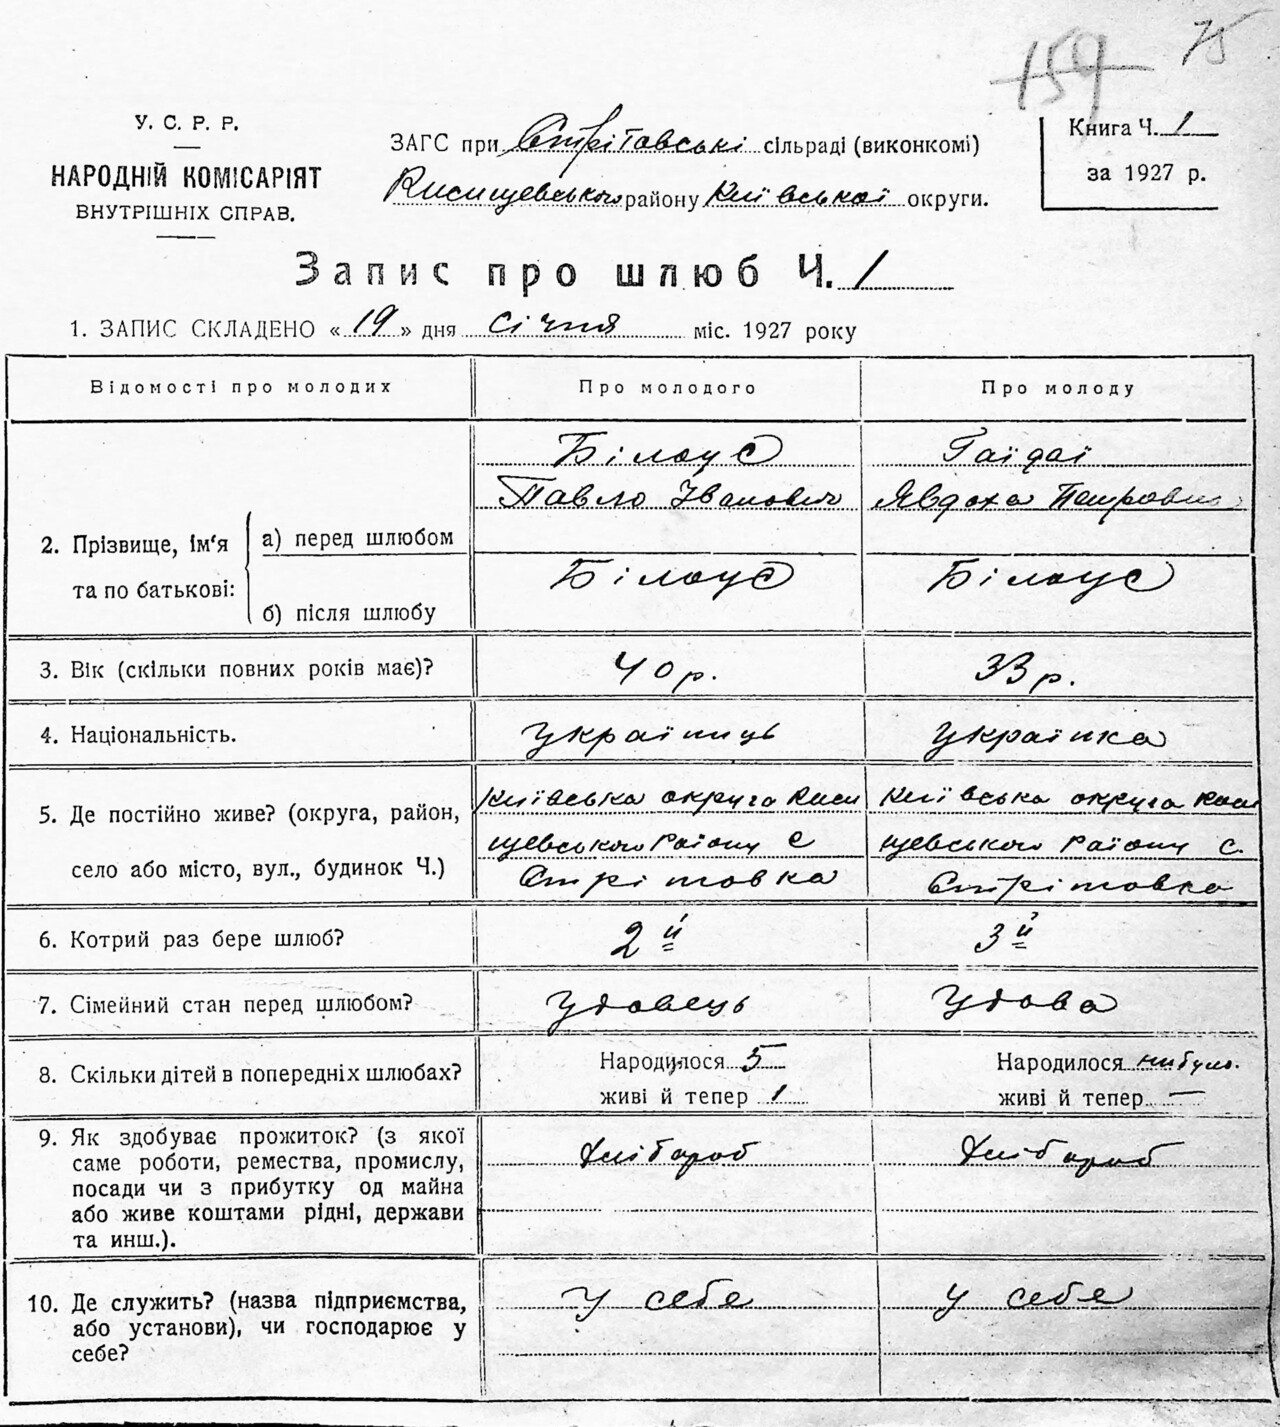 159 75
У. С. Р. Р.
НАРОДНІЙ КОМІСАРІЯТ
ВНУТРІШНІХ СПРАВ.
ЗАГС при Стрітавські сільраді (виконкомі)
Кисищевського району Київської округи.
Книга Ч. 1
за 1927 р.
Запис про шлюб Ч. 1
1. ЗАПИС СКЛАДЕНО « 19 » дня січня міс. 1927 року
Відомості про молодих Про молодого Про молоду
2. Прізвище, ім'я та по батькові:
а) перед шлюбом
Білоус
Павло Іванович
Гаїдаї
Явдоха Петровна
б) після шлюбу
Білоус
Білоус
3. Вік (скільки повних років має)? 40 р. 33 р.
4. Національність. Українць Українка
5. Де постійно живе? (округа, район,
село або місто, вул., будинок Ч.)
Київська округа Киси
щевського Раіону с
Стрітовка
Київська округа Киси
щевського Раіону с.
Стрітовка
6. Котрий раз бере шлюб? 2й 3й
7. Сімейний стан перед шлюбом? Удовець Удова
8. Скільки дітей в попередніх шлюбах?
Народилося 5
живі й тепер 1
Народилося нибуло.
живі й тепер —
9. Як здобуває прожиток? (з якої
саме роботи, ремества, промислу,
посади чи з прибутку од майна
або живе коштами рідні, держави
та инш.).
Хліборob
Хлібороб
10. Де служить? (назва підприємства,
або установи), чи господарює у
себе?
У себе
У себе